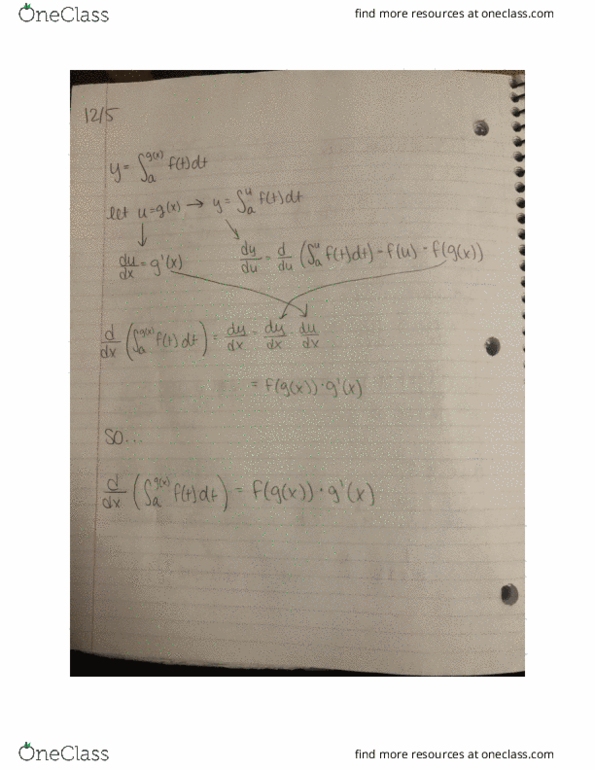 OneClass find more resources at oneclass.com
12/5
y = ∫ₐ^g(x) f(t)dt
let u=g(x) → y = ∫ₐ^u f(t)dt
du/dx = g'(x) dy/du = d/du (∫ₐ^u f(t)dt) = f(u) = f(g(x))
d/dx (∫ₐ^g(x) f(t)dt) = dy/dx = dy/dx · du/dx
= f(g(x)) · g'(x)
SO...
d/dx (∫ₐ^g(x) f(t)dt) = f(g(x)) · g'(x)
OneClass find more resources at oneclass.com